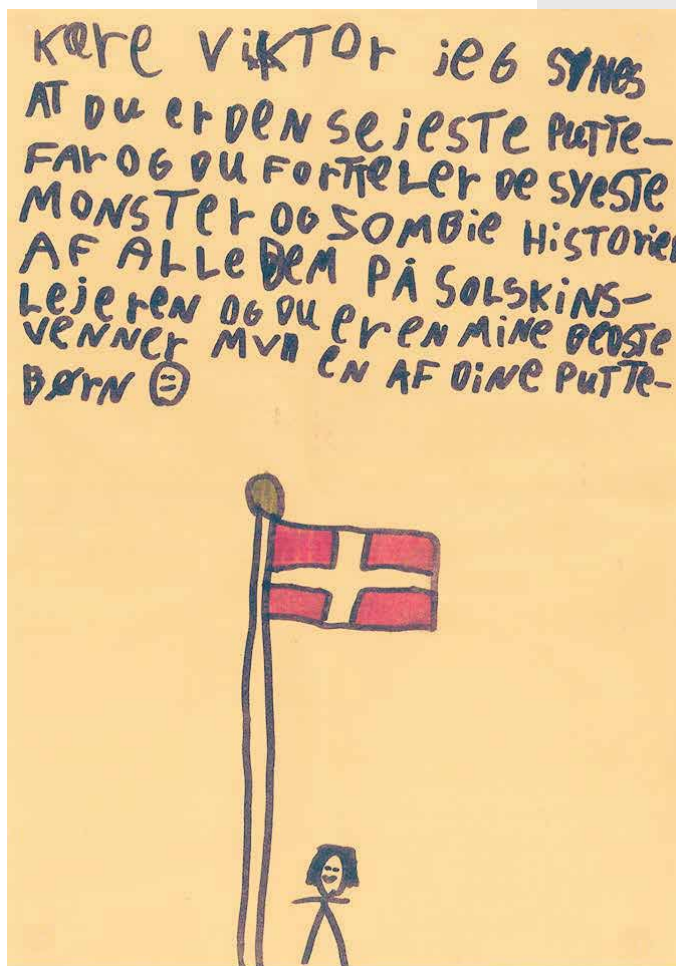 Kære Viktor jeg synes
AT DU er DEN sejeste PUTTE-
FAr OG DU FORTÆLer DE syeste
MONSTer OG SOMBie Historier
AF ALLe DEM PÅ SOLSKINS-
Lejeren OG DU er EN Mine BEDSTE
venner MVH EN AF Dine PUTTE-
BørN